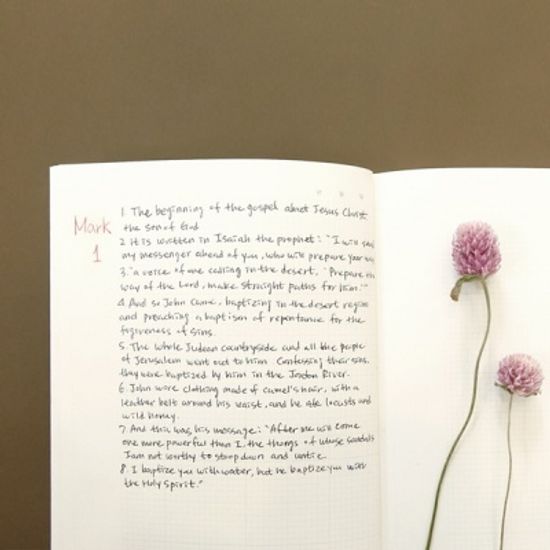 Mark
1
1. The beginning of the gospel about Jesus Christ
the son of God
2 It is written in Isaiah the prophet: "I will send
my messenger ahead of you, who will prepare your way
3. "a voice of one calling in the desert, 'Prepare the
way of the Lord, make straight paths for him.'"
4. And so John came, baptizing in the desert region
and preaching a baptism of repentance for the
forgiveness of sins.
5. The whole Judean countryside and all the people
of Jerusalem went out to him Confessing their sins,
they were baptized by him in the Jordan River.
6 John wore clothing made of camel's hair, with a
leather belt around his waist, and he ate locusts and
wild honey.
7. And this was his message: "After me will come
one more powerful than I, the thongs of whose sandals
I am not worthy to stoop down and untie.
8. I baptize you with water, but he baptize you with
the Holy Spirit."